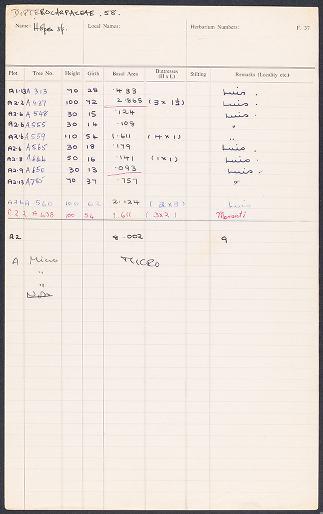 DIPTEROCARPACEAE. 58.
Name: Hopea sp. Local Names: Herbarium Numbers: F. 37
Plot Tree No. Height Girth Basal Area Buttresses (H x L) Stilting Remarks (Locality etc.)
A1·13 A 313 70 28 ·433 Luis .
A2·2 A 427 100 72 2·865 (3 x 1½) Luis .
A2·6 A 548 30 15 ·124 Luis .
A2·6 A 555 30 14 ·108 "
A2·6 A 559 110 54 1·611 (4 x 1) "
A2·6 A 565 30 18 ·179 Luis .
A2·8 A 644 50 16 ·141 (1 x 1) Luis .
A2·9 A 650 30 13 ·093 Luis .
A2·13 A 750 70 37 ·757 "
A2·6 A 560 100 62 2·124 (2 x 3) Luis
A2·2 A 438 100 54 1·611 (3 x 2) Meranti
A2 8·002 9
A Micro MICRO
"
"